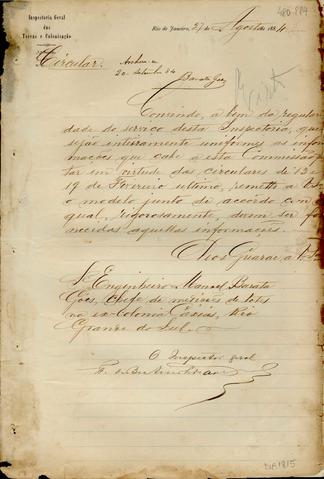 Inspectoria Geral
das
Terras e Colonização
480.884
Rio de Janeiro, 27 de Agosto de 1884.
Circular.
20 Setembro 84
Barata Góes
Convindo, a bem da regulari
dade do serviço desta Inspectoria, que
sejão inteiramente uniformes as infor
mações que cabe a esta Commissão pres
tar em virtude das circulares de 13 e
19 de Fevereiro ultimo, remetto a V. S.
o modelo junto de accordo com o
qual, rigorosamente, devem ser for
necidas aquellas informações.
Deos Guarde a V. S.
Sr. Engenheiro Manoel Barata
Góes, Chefe de medições de lotes
na ex-Colonia Caxias, Rio
Grande do Sul.
O Inspector geral
1815